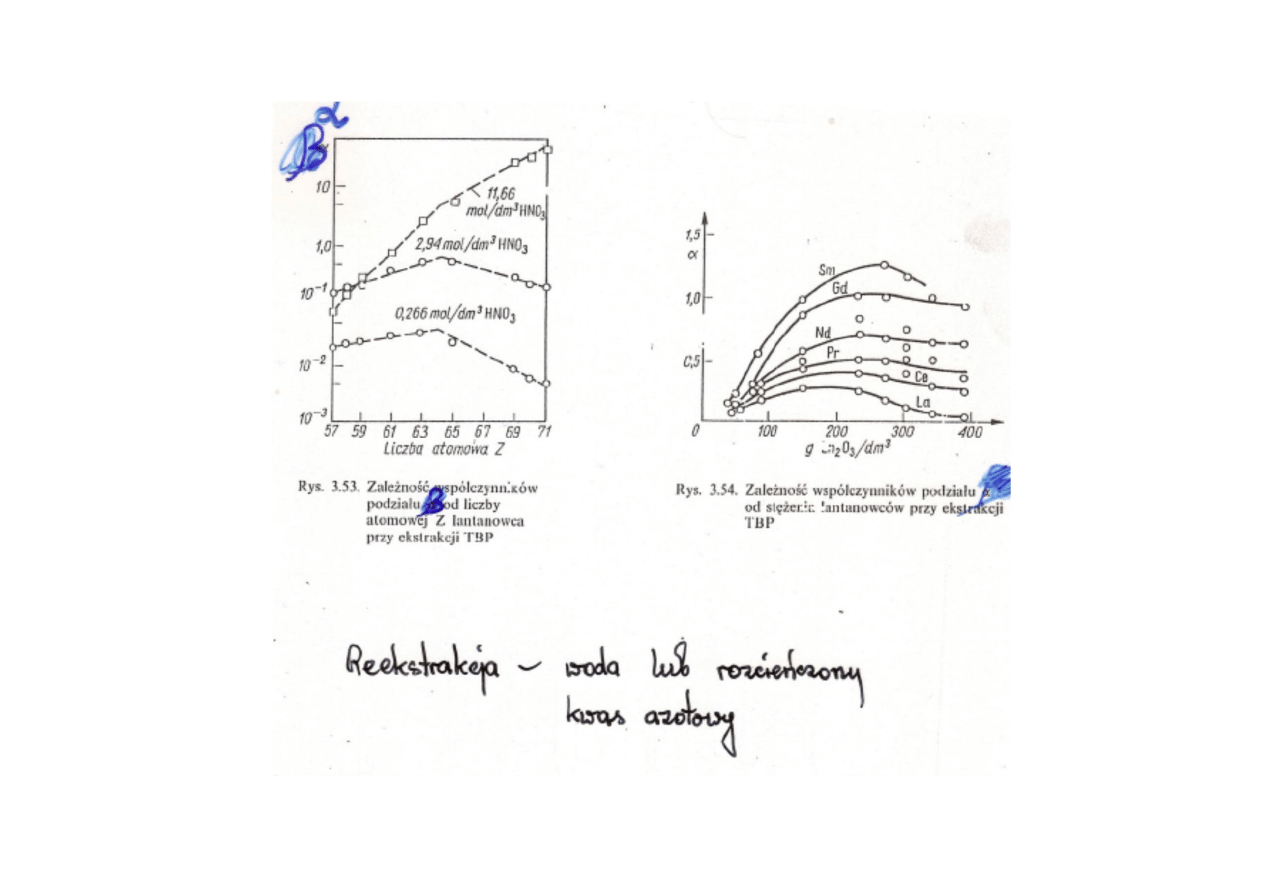 α
B
10
1,0
10⁻¹
10⁻²
10⁻³
11,66
mol/dm³ HNO₃
2,94 mol/dm³ HNO₃
0,266 mol/dm³ HNO₃
57 59 61 63 65 67 69 71
Liczba atomowa Z
Rys. 3.53. Zależność współczynników
podziału B od liczby
atomowej Z lantanowca
przy ekstrakcji TBP
1,5
α
1,0
0,5
Sm
Gd
Nd
Pr
Ce
La
0 100 200 300 400
g Ln₂O₃/dm³
Rys. 3.54. Zależność współczynników podziału α
od stężenia lantanowców przy ekstrakcji
TBP
Reekstrakcja – woda lub rozcieńczony
kwas azotowy